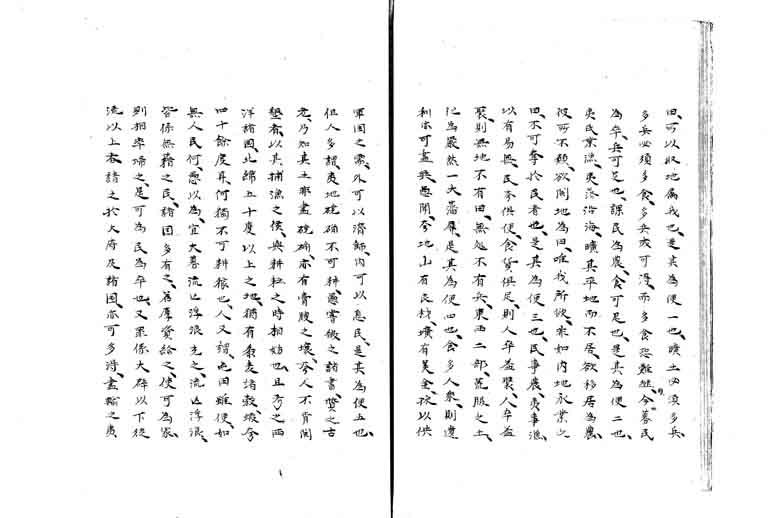 田、可以收地属我也、是其為便一也、曠土必須多兵
多兵必須多食、多兵或可得、而多食恐難継、今募民
為卒、兵可足也、課民為農、食可足也、是其為便二也、
夷民業漁、夷落沿海、曠其平地而不居、欲移居為農
彼所不願、欲開地為田、唯我所欲、非如内地永業之
田、不可奪於民者也、是其為便三也、民事農、夷事漁、
以有易無、民夷俱便、食貨俱足、則人卒益聚、人卒益
聚、則無地不有田、無処不有兵、東西二部、荒服之土、
化為厳然一大藩屏、是其為便四也、食多人衆、則遺
利亦可盡興、悉開、夸地山有良材、壙有美金、採以供
軍国之需、外可以濟師、内可以息民、是其為便五也、
但人多謂、夷地磽确不可耕、愚嘗徴之諸書、質之古
老、乃知其土非盡磽确、亦有膏腴之壌、夷人不肯開
墾者、以其捕漁之侯、與耕耘之時相妨也、且考之西
洋諸国、北緯五十度以上之地、猶有黍麦諸穀、蝦夷
四十餘度耳、何獨不可耕稼也、人又謂、屯田雖便、如
無人民何、愚以為、宜大募流亡浮浪充之、流亡浮浪、
皆係無藉之民、諸国多有之、若厚資給之、使可為家、
則相率帰之、是可為民為卒也、又罪係大辟以下徒
流以上者、請之於大府及諸国、亦可多得、盡輸之夷